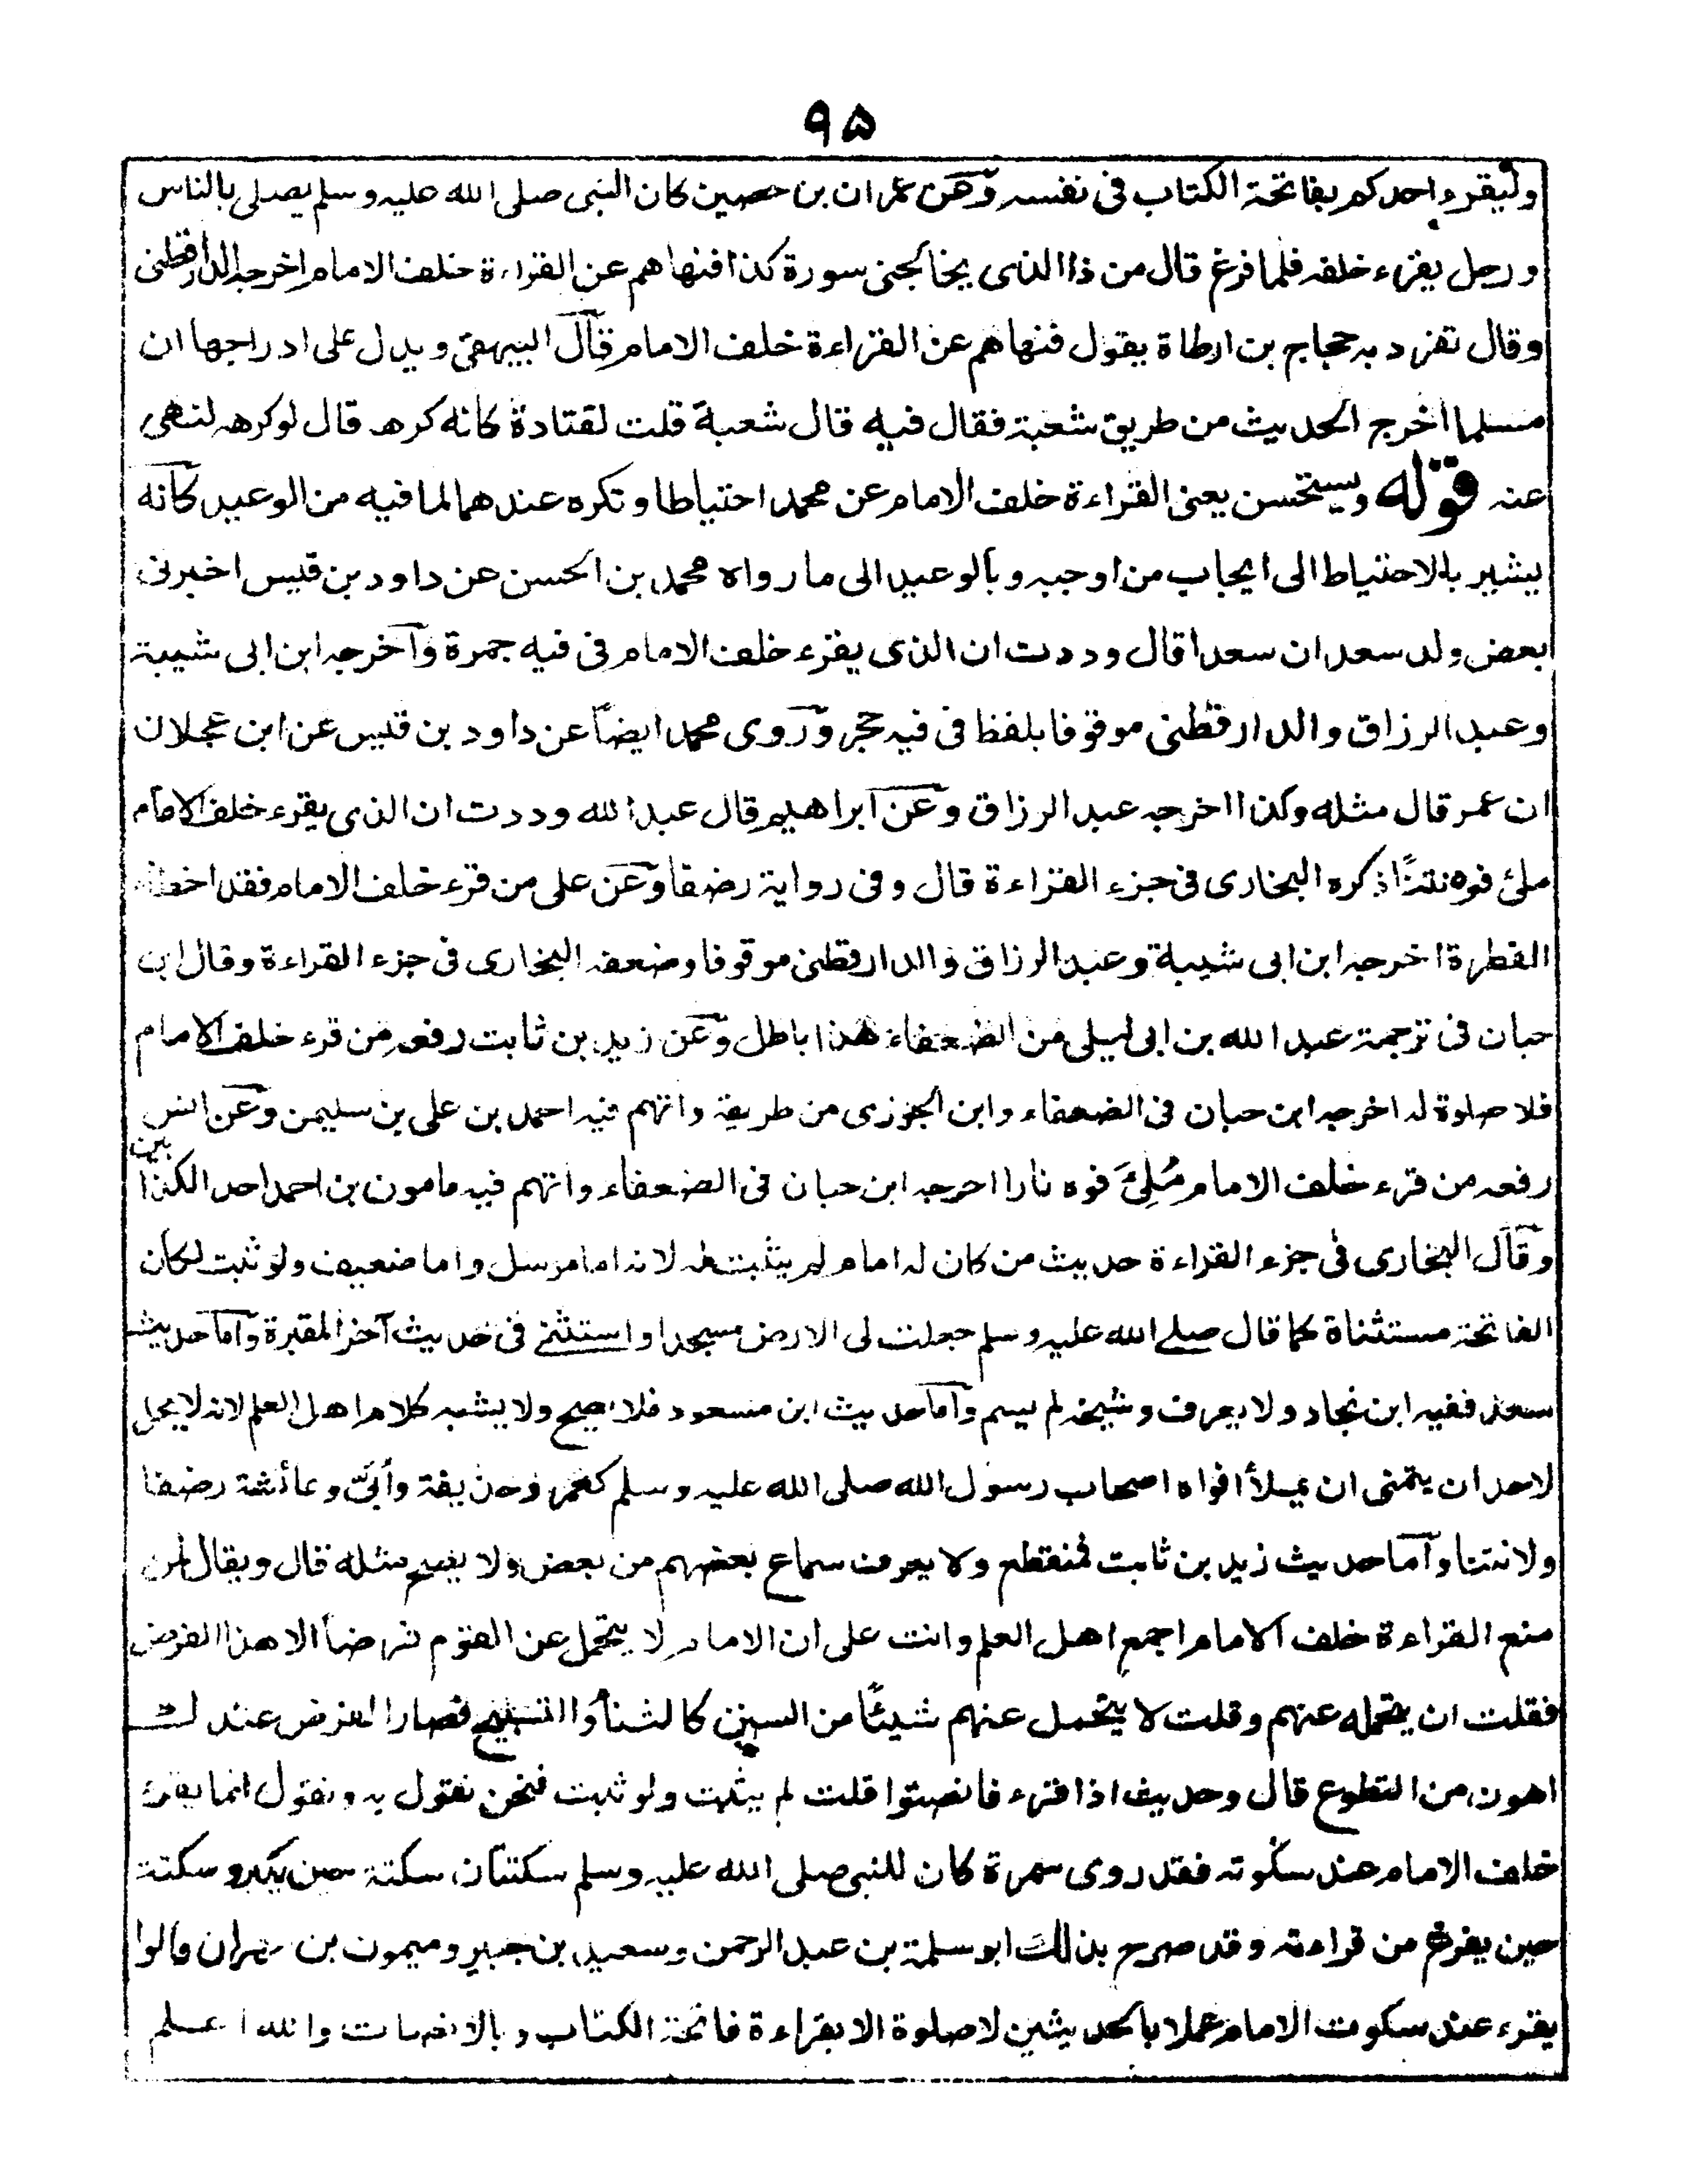 ۹۵
وليقرء احدكم بفاتحة الكتاب فى نفسه وعن عمران بن حصين كان النبى صلى الله عليه وسلم يصلى بالناس
ورجل يقرء خلفه فلما فرغ قال من ذا الذى يخالجنى سورة كذا فنهاهم عن القراءة خلف الامام اخرجه الدارقطنى
وقال تفرد به حجاج بن ارطاة بقول فنهاهم عن القراءة خلف الامام قال البيهقى ويدل على ادراجها ان
مسلما اخرج الحديث من طريق شعبة فقال فيه قال شعبة قلت لقتادة كانه كرهه قال لوكرهه لنهى
عنه قوله ويستحسن يعنى القراءة خلف الامام عن محمد احتياطا وتكره عندهما لما فيه من الوعيد كانه
يشير بالاحتياط الى ايجاب من اوجبه وبالوعيد الى ما رواه محمد بن الحسن عن داود بن قيس اخبرنى
بعض ولد سعد ان سعدا قال وددت ان الذى يقرء خلف الامام فى فيه جمرة وآخرجه ابن ابى شيبة
وعبد الرزاق والدارقطنى موقوفا بلفظ فى فيه حجر وروى محمد ايضاً عن داود بن قيس عن ابن عجلان
ان عمر قال مثله وكذا اخرجه عبد الرزاق وعن ابراهيم قال عبد الله وددت ان الذى يقرء خلف الامام
ملئ فوه نتنًا ذكره البخارى فى جزء القراءة قال وفى رواية رضفا وعن على من قرء خلف الامام فقد اخطأ
الفطرة اخرجه ابن ابى شيبة وعبد الرزاق والدارقطنى موقوفا وضعفه البخارى فى جزء القراءة وقال ابن
حبان فى ترجمة عبد الله بن ابى ليلى من الضعفاء هذا باطل وعن زيد بن ثابت رفعه من قرء خلف الامام
فلا صلوة له اخرجه ابن حبان فى الضعفاء وابن الجوزى من طريقه واتهم فيه احمد بن على بن سليمن وعن انس
رفعه من قرء خلف الامام مُلِئَ فوه نارا اخرجه ابن حبان فى الضعفاء واتهم فيه مامون بن احمد احد الكذابين
وقال البخارى فى جزء القراءة حديث من كان له امام لم يثبت لانه اما مرسل واما ضعيف ولو ثبت لكان
الفاتحة مستثناة كما قال صلى الله عليه وسلم جعلت لى الارض مسجدا واستثنى فى حديث آخر المقبرة وآما حديث
سعد ففيه ابن نجاد ولا يعرف وشيخه لم يسم وآما حديث ابن مسعود فلا يصح ولا يشبه كلام اهل العلم لانه لا يحل
لاحد ان يتمنى ان يملأ افواه اصحاب رسول الله صلى الله عليه وسلم كعمر وحذيفة وأبىّ وعائشة رضفا
ولا نتنا وآما حديث زيد بن ثابت فمنقطع ولا يعرف سماع بعضهم من بعض ولا يصح مثله قال ويقال لمن
منع القراءة خلف الامام اجمع اهل العلم وانت على ان الامام لا يتحمل عن القوم فرضاً الا هذا الفرض
فقلت ان يتحمله عنهم وقلت لا يتحمل عنهم شيئًا من السنن كالثناء والتسبيح فصار الفرض عندك
اهون من التطوع قال وحديث اذا قرء فانصتوا قلت لم يثبت ولو ثبت فنحن نقول به ونقول انما يقرئ
خلف الامام عند سكوته فقد روى سمرة كان للنبى صلى الله عليه وسلم سكتتان سكتة حين يكبر وسكتة
حين يفرغ من قراءته وقد صرح بذلك ابوسلمة بن عبد الرحمن وسعيد بن جبير وميمون بن مهران قالوا
يقرء عند سكوت الامام عملا بالحديثين لا صلوة الا بقراءة فاتحة الكتاب وبالانصات والله اعلم